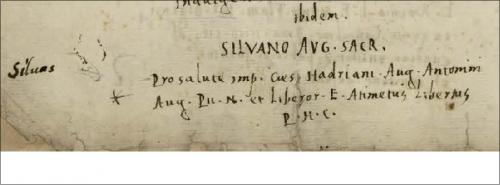 ibidem.
SILVANO AVG. SACR.
Siluas
Pro salute imp. Cæs Hadriani. Aug. Antonini
Aug. Pii. N. et Liberor. E. Atimetus Libertus
P. H. C.